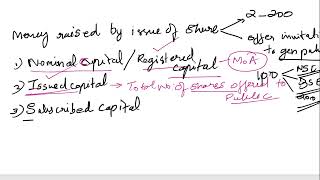 Money raised by issue of share
2 - 200
offer invitati
to gen pub
1) Nominal Capital / Registered
capital
MoA
100
NSE
BSE
2) Issued capital → Total No. of shares offered to
Public
3) Subscribed capital